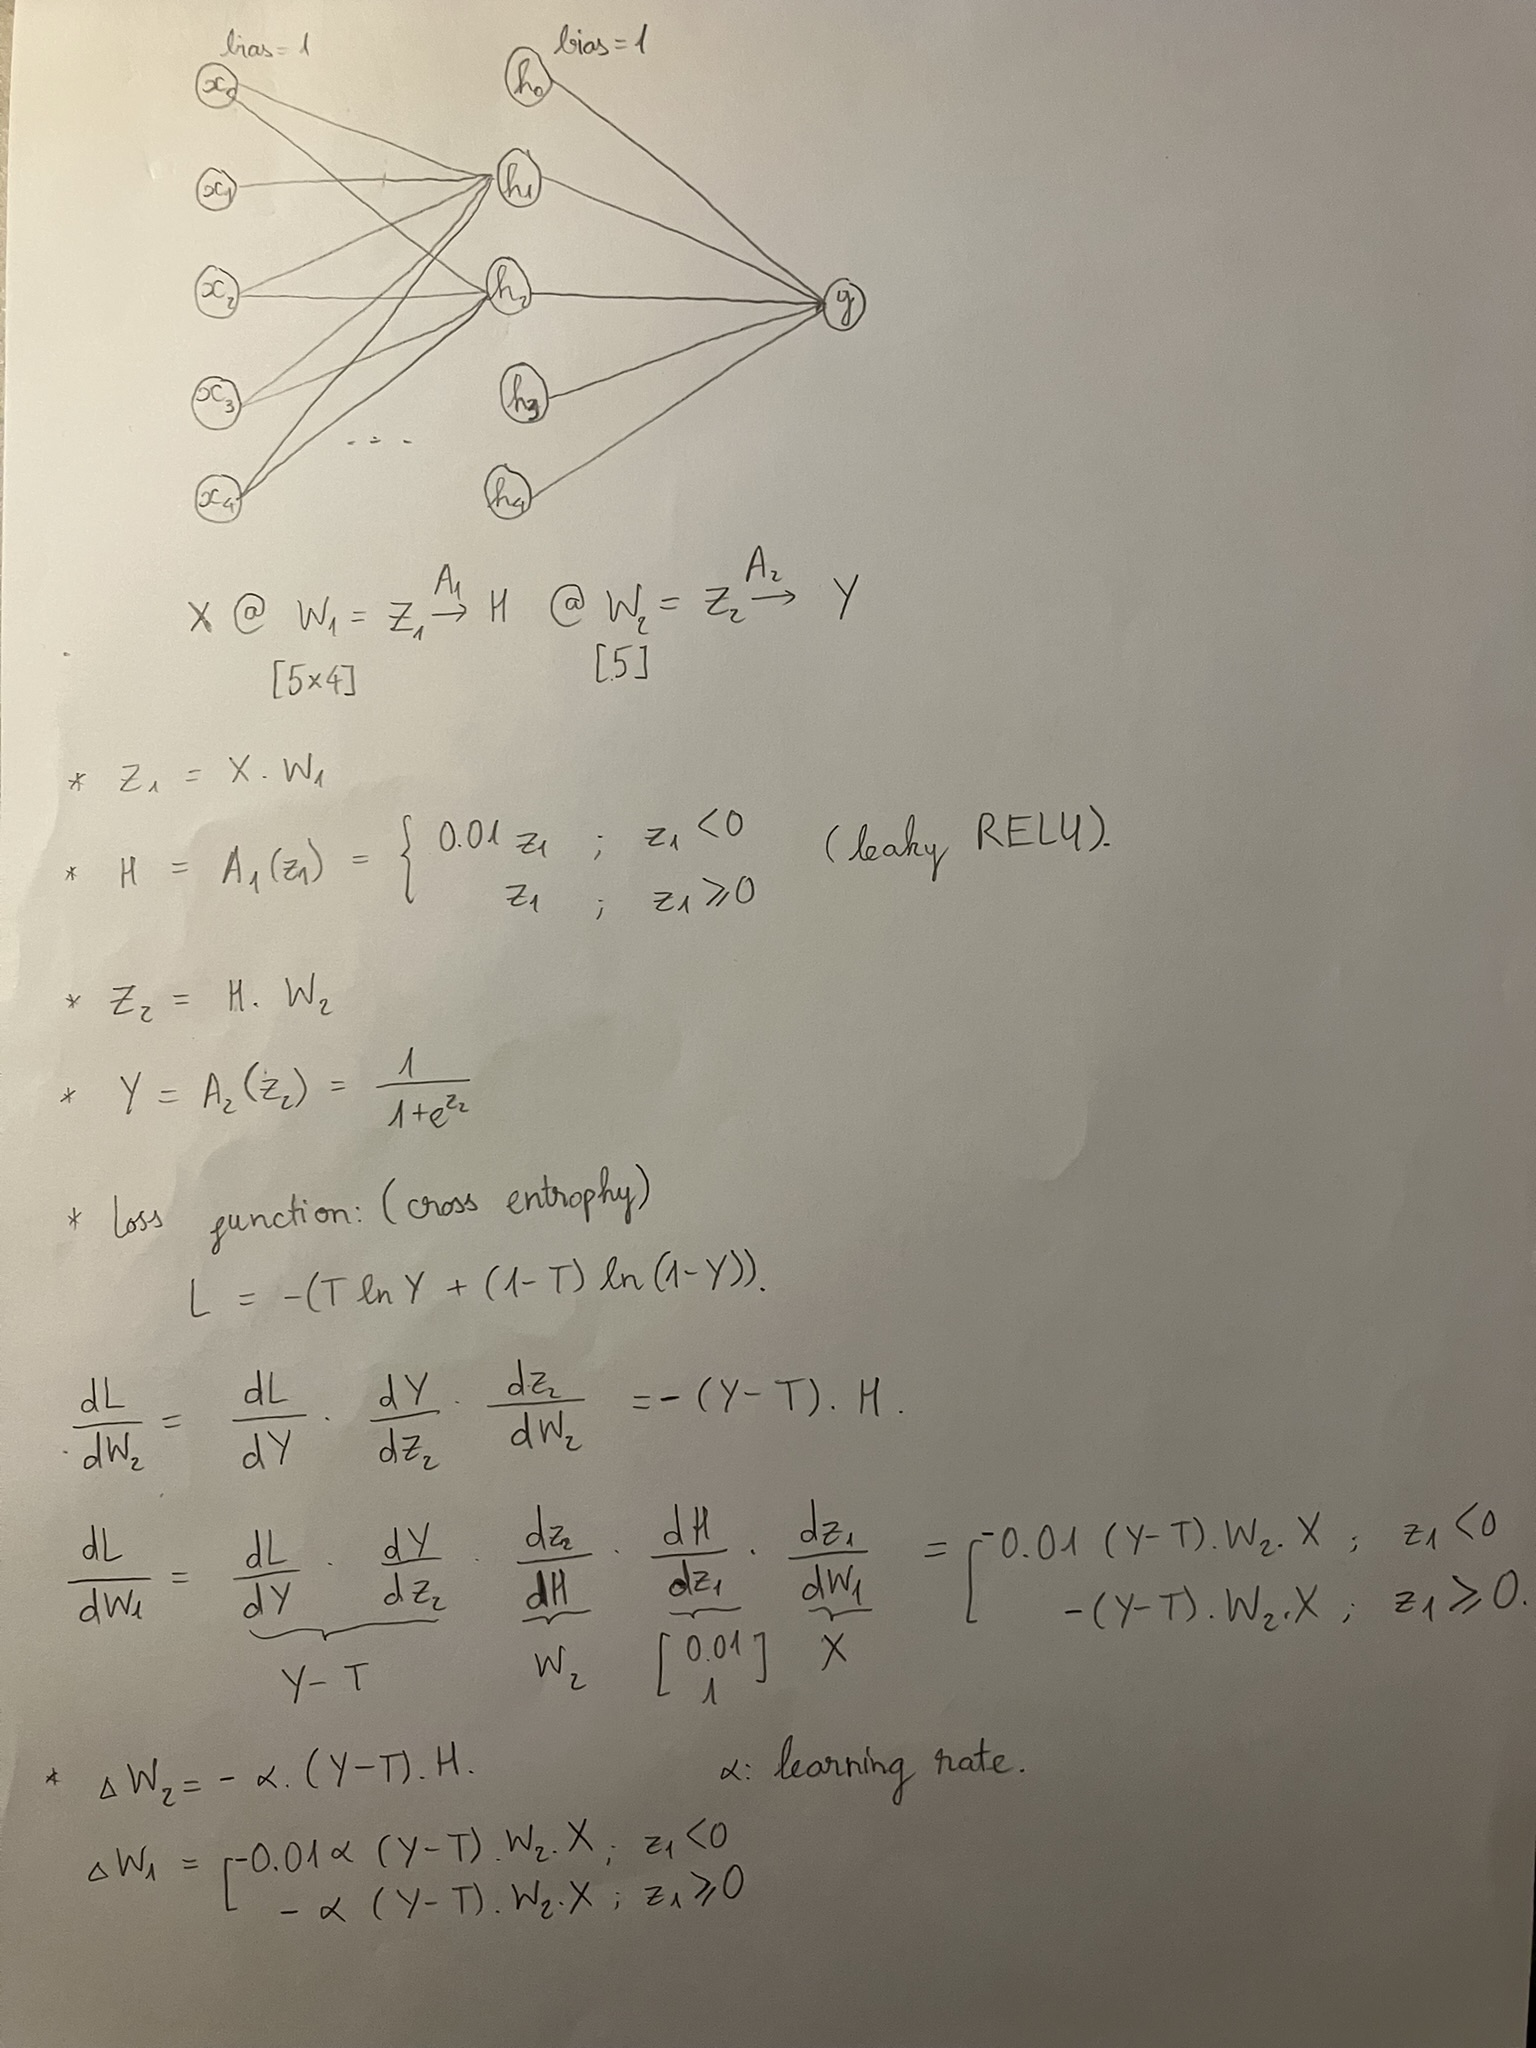 bias = 1 bias = 1
x₀ h₀
x₁ h₁
x₂ h₂ y
x₃ h₃
x₄ h₄
- - -
X @ W₁ = Z₁ →(A₁) H @ W₂ = Z₂ →(A₂) Y
[5×4] [5]
* Z₁ = X . W₁
* H = A₁(z₁) = { 0.01 z₁ ; z₁ < 0 (leaky RELU).
z₁ ; z₁ ⩾ 0
* Z₂ = H . W₂
* Y = A₂(z₂) = 1 / (1+e^z₂)
* Loss function: (cross entrophy)
L = -(T ln Y + (1-T) ln (1-Y)).
dL/dW₂ = dL/dY . dY/dZ₂ . dz₂/dW₂ = - (Y-T). H .
dL/dW₁ = dL/dY . dY/dz₂ . dz₂/dH . dH/dz₁ . dz₁/dW₁ = [ -0.01 (Y-T). W₂. X ; z₁ < 0
-(Y-T). W₂.X ; z₁ ⩾ 0.
Y-T W₂ [0.01 X
1]
* △W₂ = - α. (Y-T). H. α: learning rate.
△W₁ = [ -0.01α (Y-T). W₂. X ; z₁ < 0
- α (Y-T). W₂.X ; z₁ ⩾ 0